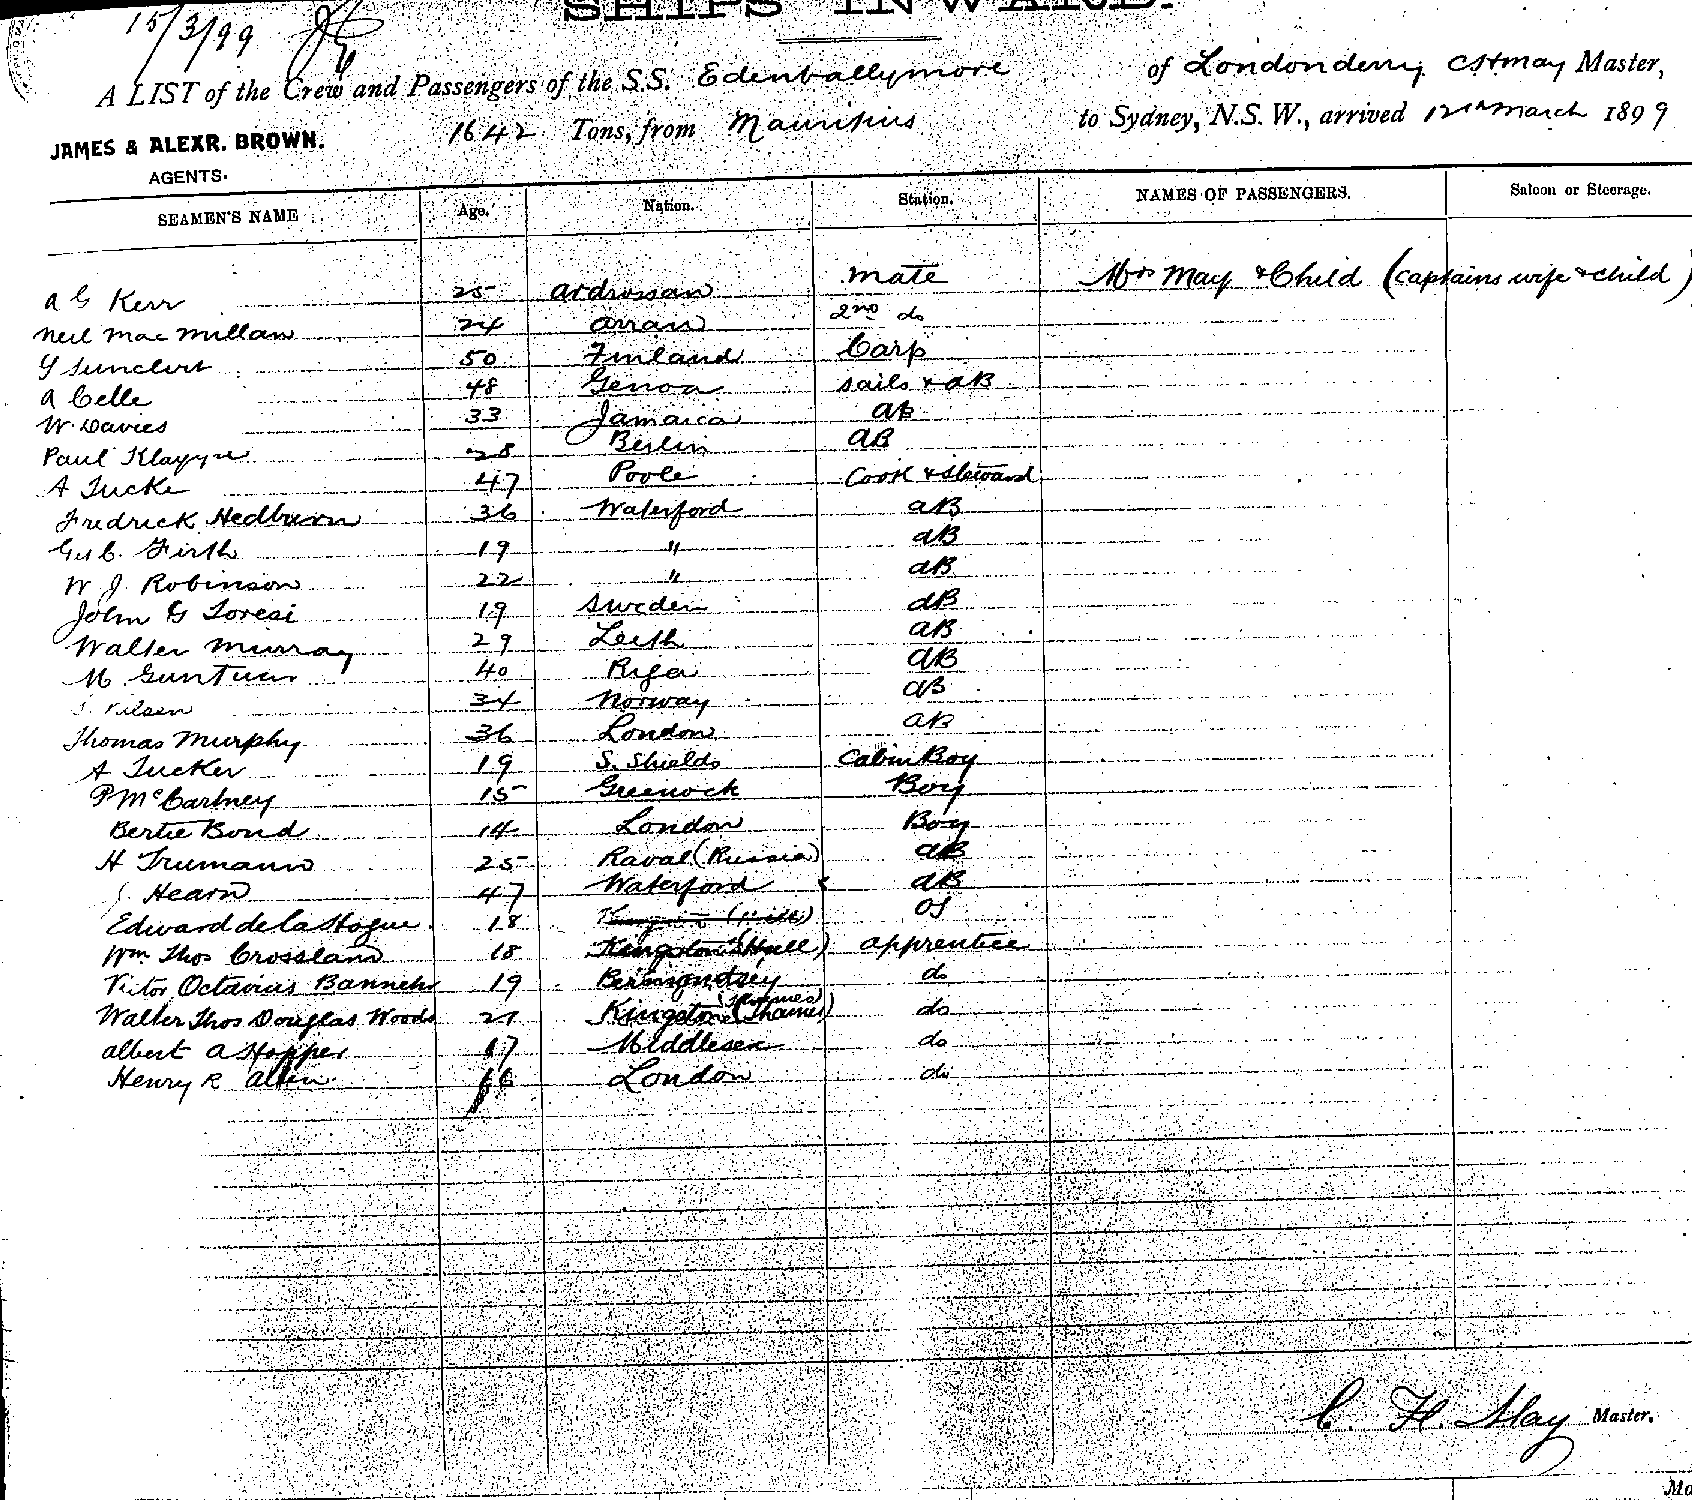 SHIPS INWARD.
15/3/99
A LIST of the Crew and Passengers of the S.S. Edenballymore of Londonderry C H May Master,
JAMES & ALEXR. BROWN. 1642 Tons, from Mauritius to Sydney, N.S.W., arrived 12th March 1899
AGENTS.
SEAMEN'S NAME Age. Nation. Station. NAMES OF PASSENGERS. Saloon or Steerage.
A G Kerr 25 Ardrossan Mate Mrs May & Child (Captains wife & child)
Neil MacMillan 24 Arran 2nd do
50 Finland Carp
A Celle 48 Genoa Sails & AB
W. Davies 33 Jamaica AB
Paul 28 Berlin AB
A Tucke 47 Poole Cook & Steward
Fredrick Hedburn 36 Waterford AB
Firth 19 " AB
W J. Robinson 22 " AB
John G Toresi 19 Sweden AB
Walter Murray 29 Leith AB
M 40 Riga AB
34 Norway AB
Thomas Murphy 36 London AB
A Tucker 19 S. Shields Cabin Boy
P McCartney 15 Greenock Boy
Bertie Bond 14 London Boy
H Trumann 25 Raval (Russia) AB
J. Hearn 47 Waterford AB
Edward de la Hogue 18 OS
Wm Thos Crossland 18 Kingston (Hull) apprentice
Victor Octavius 19 Bermondsey do
Walter Thos Douglas Woods 21 Kingston (Thames) do
Albert A Hopper 17 Middlesex do
Henry R Allen 16 London do
C. H. May Master.